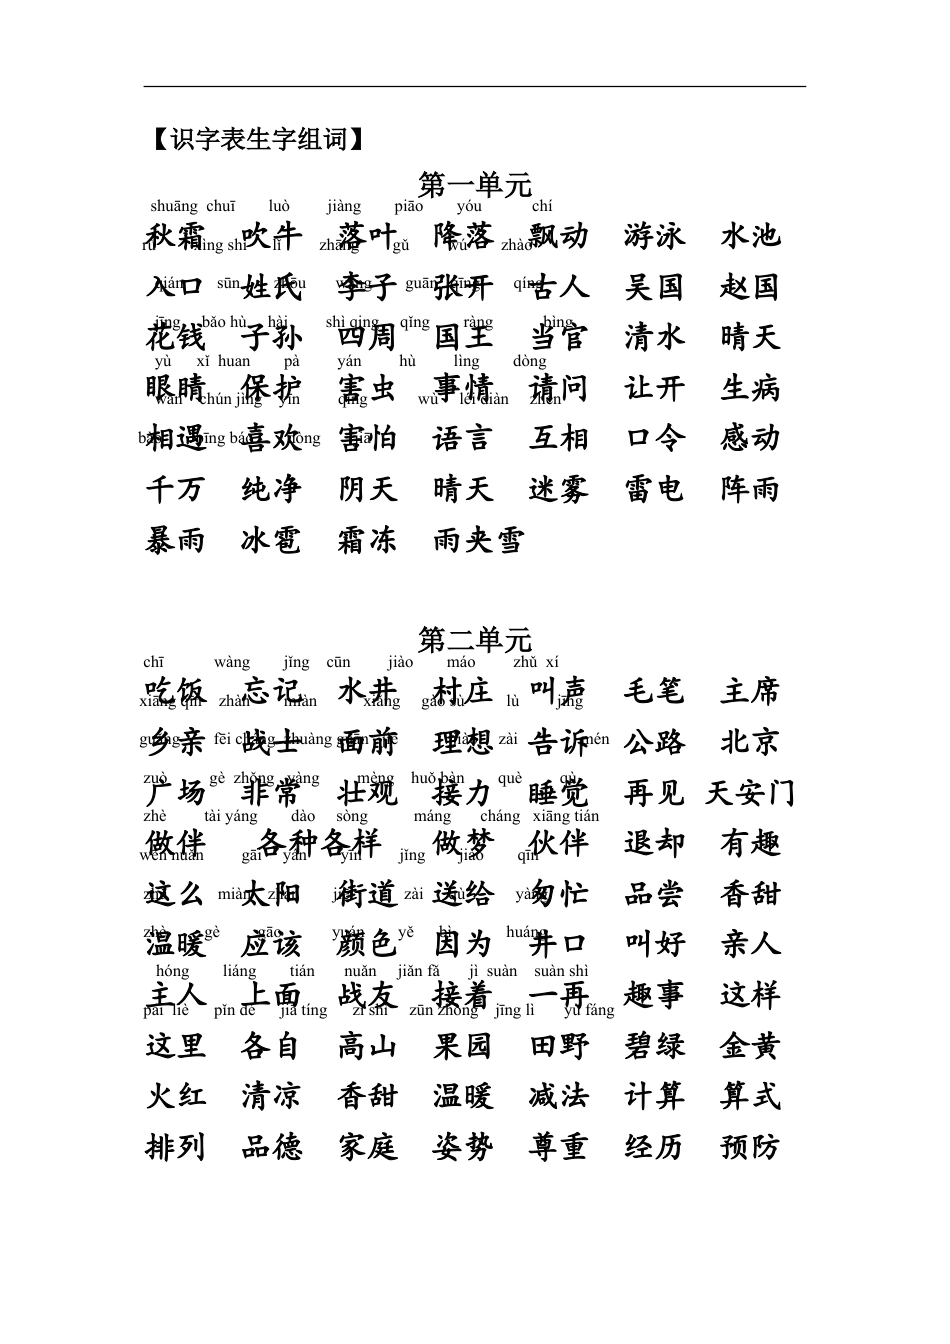 【识字表生字组词】
第一单元
shuāng chuī luò jiàng piāo yóu chí
秋霜 吹牛 落叶 降落 飘动 游泳 水池
rù xìng shì lǐ zhāng gǔ wú zhào
入口 姓氏 李子 张开 古人 吴国 赵国
qián sūn zhōu wáng guān qīng qíng
花钱 子孙 四周 国王 当官 清水 晴天
jīng bǎo hù hài shì qing qǐng ràng bìng
眼睛 保护 害虫 事情 请问 让开 生病
yù xǐ huan pà yán hù lìng dòng
相遇 喜欢 害怕 语言 互相 口令 感动
wàn chún jìng yīn qíng wù léi diàn zhèn
千万 纯净 阴天 晴天 迷雾 雷电 阵雨
bào bīng báo dòng jiā
暴雨 冰雹 霜冻 雨夹雪
第二单元
chī wàng jǐng cūn jiào máo zhǔ xí
吃饭 忘记 水井 村庄 叫声 毛笔 主席
xiāng qīn zhàn miàn xiǎng gào sù lù jīng
乡亲 战士 面前 理想 告诉 公路 北京
guǎng fēi cháng zhuàng guān jiē jiào zài mén
广场 非常 壮观 接力 睡觉 再见 天安门
zuò gè zhǒng yàng mèng huǒ bàn què qù
做伴 各种各样 做梦 伙伴 退却 有趣
zhè tài yáng dào sòng máng cháng xiāng tián
这么 太阳 街道 送给 匆忙 品尝 香甜
wēn nuǎn gāi yán yīn jǐng jiào qīn
温暖 应该 颜色 因为 井口 叫好 亲人
zhǔ miàn zhàn jiē zài qù yàng
主人 上面 战友 接着 一再 趣事 这样
zhè gè gāo yuán yě bì huáng
这里 各自 高山 果园 田野 碧绿 金黄
hóng liáng tián nuǎn jiǎn fǎ jì suàn suàn shì
火红 清凉 香甜 温暖 减法 计算 算式
pái liè pǐn dé jiā tíng zī shì zūn zhòng jīng lì yù fáng
排列 品德 家庭 姿势 尊重 经历 预防